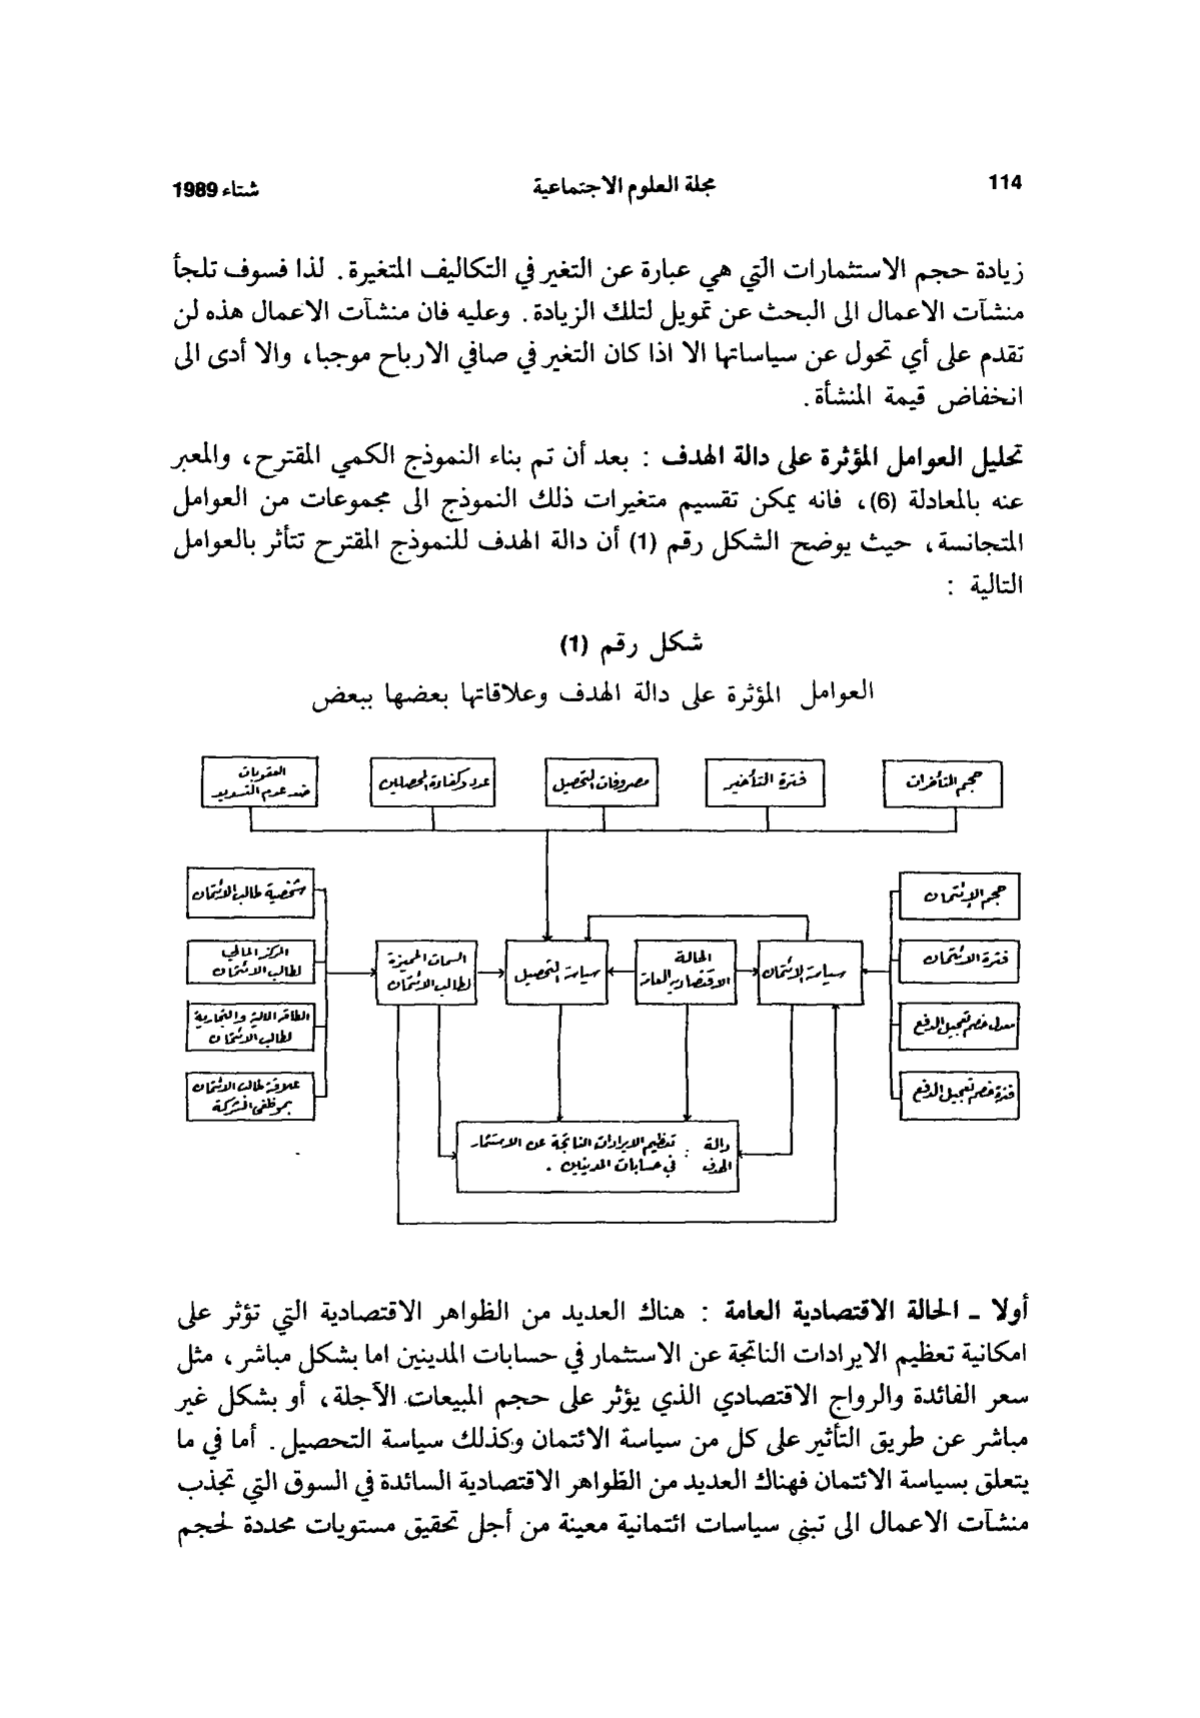 114
مجلة العلوم الاجتماعية
شتاء 1989
زيادة حجم الاستثمارات التي هي عبارة عن التغير في التكاليف المتغيرة. لذا فسوف تلجأ
منشآت الاعمال الى البحث عن تمويل لتلك الزيادة. وعليه فان منشآت الاعمال هذه لن
تقدم على أي تحول عن سياساتها الا اذا كان التغير في صافي الارباح موجبا، والا أدى الى
انخفاض قيمة المنشأة.
تحليل العوامل المؤثرة على دالة الهدف : بعد أن تم بناء النموذج الكمي المقترح، والمعبر
عنه بالمعادلة (6)، فانه يمكن تقسيم متغيرات ذلك النموذج الى مجموعات من العوامل
المتجانسة، حيث يوضح الشكل رقم (1) أن دالة الهدف للنموذج المقترح تتأثر بالعوامل
التالية :
شكل رقم (1)
العوامل المؤثرة على دالة الهدف وعلاقاتها بعضها ببعض
حجم المتأخرات
فترة التأخير
مصروفات التحصيل
عدد وكفاءة المحصلين
العقوبات
ضد عدم التسديد
حجم الإئتمان
فترة الائتمان
معدل خصم تعجيل الدفع
فترة خصم تعجيل الدفع
سياسة الإئتمان
الحالة
الاقتصادية العامة
سياسة التحصيل
السمات المميزة
لطالب الائتمان
شخصية طالب الائتمان
المركز المالي
لطالب الائتمان
الطاقة المالية والتجارية
لطالب الائتمان
علاقة طالب الائتمان
بموظفي الشركة
دالة : تعظيم الايرادات الناتجة عن الاستثمار
الهدف في حسابات المدينين .
أولا ـ الحالة الاقتصادية العامة : هناك العديد من الظواهر الاقتصادية التي تؤثر على
امكانية تعظيم الايرادات الناتجة عن الاستثمار في حسابات المدينين اما بشكل مباشر، مثل
سعر الفائدة والرواج الاقتصادي الذي يؤثر على حجم المبيعات الآجلة، أو بشكل غير
مباشر عن طريق التأثير على كل من سياسة الائتمان وكذلك سياسة التحصيل. أما في ما
يتعلق بسياسة الائتمان فهناك العديد من الظواهر الاقتصادية السائدة في السوق التي تجذب
منشآت الاعمال الى تبني سياسات ائتمانية معينة من أجل تحقيق مستويات محددة لحجم